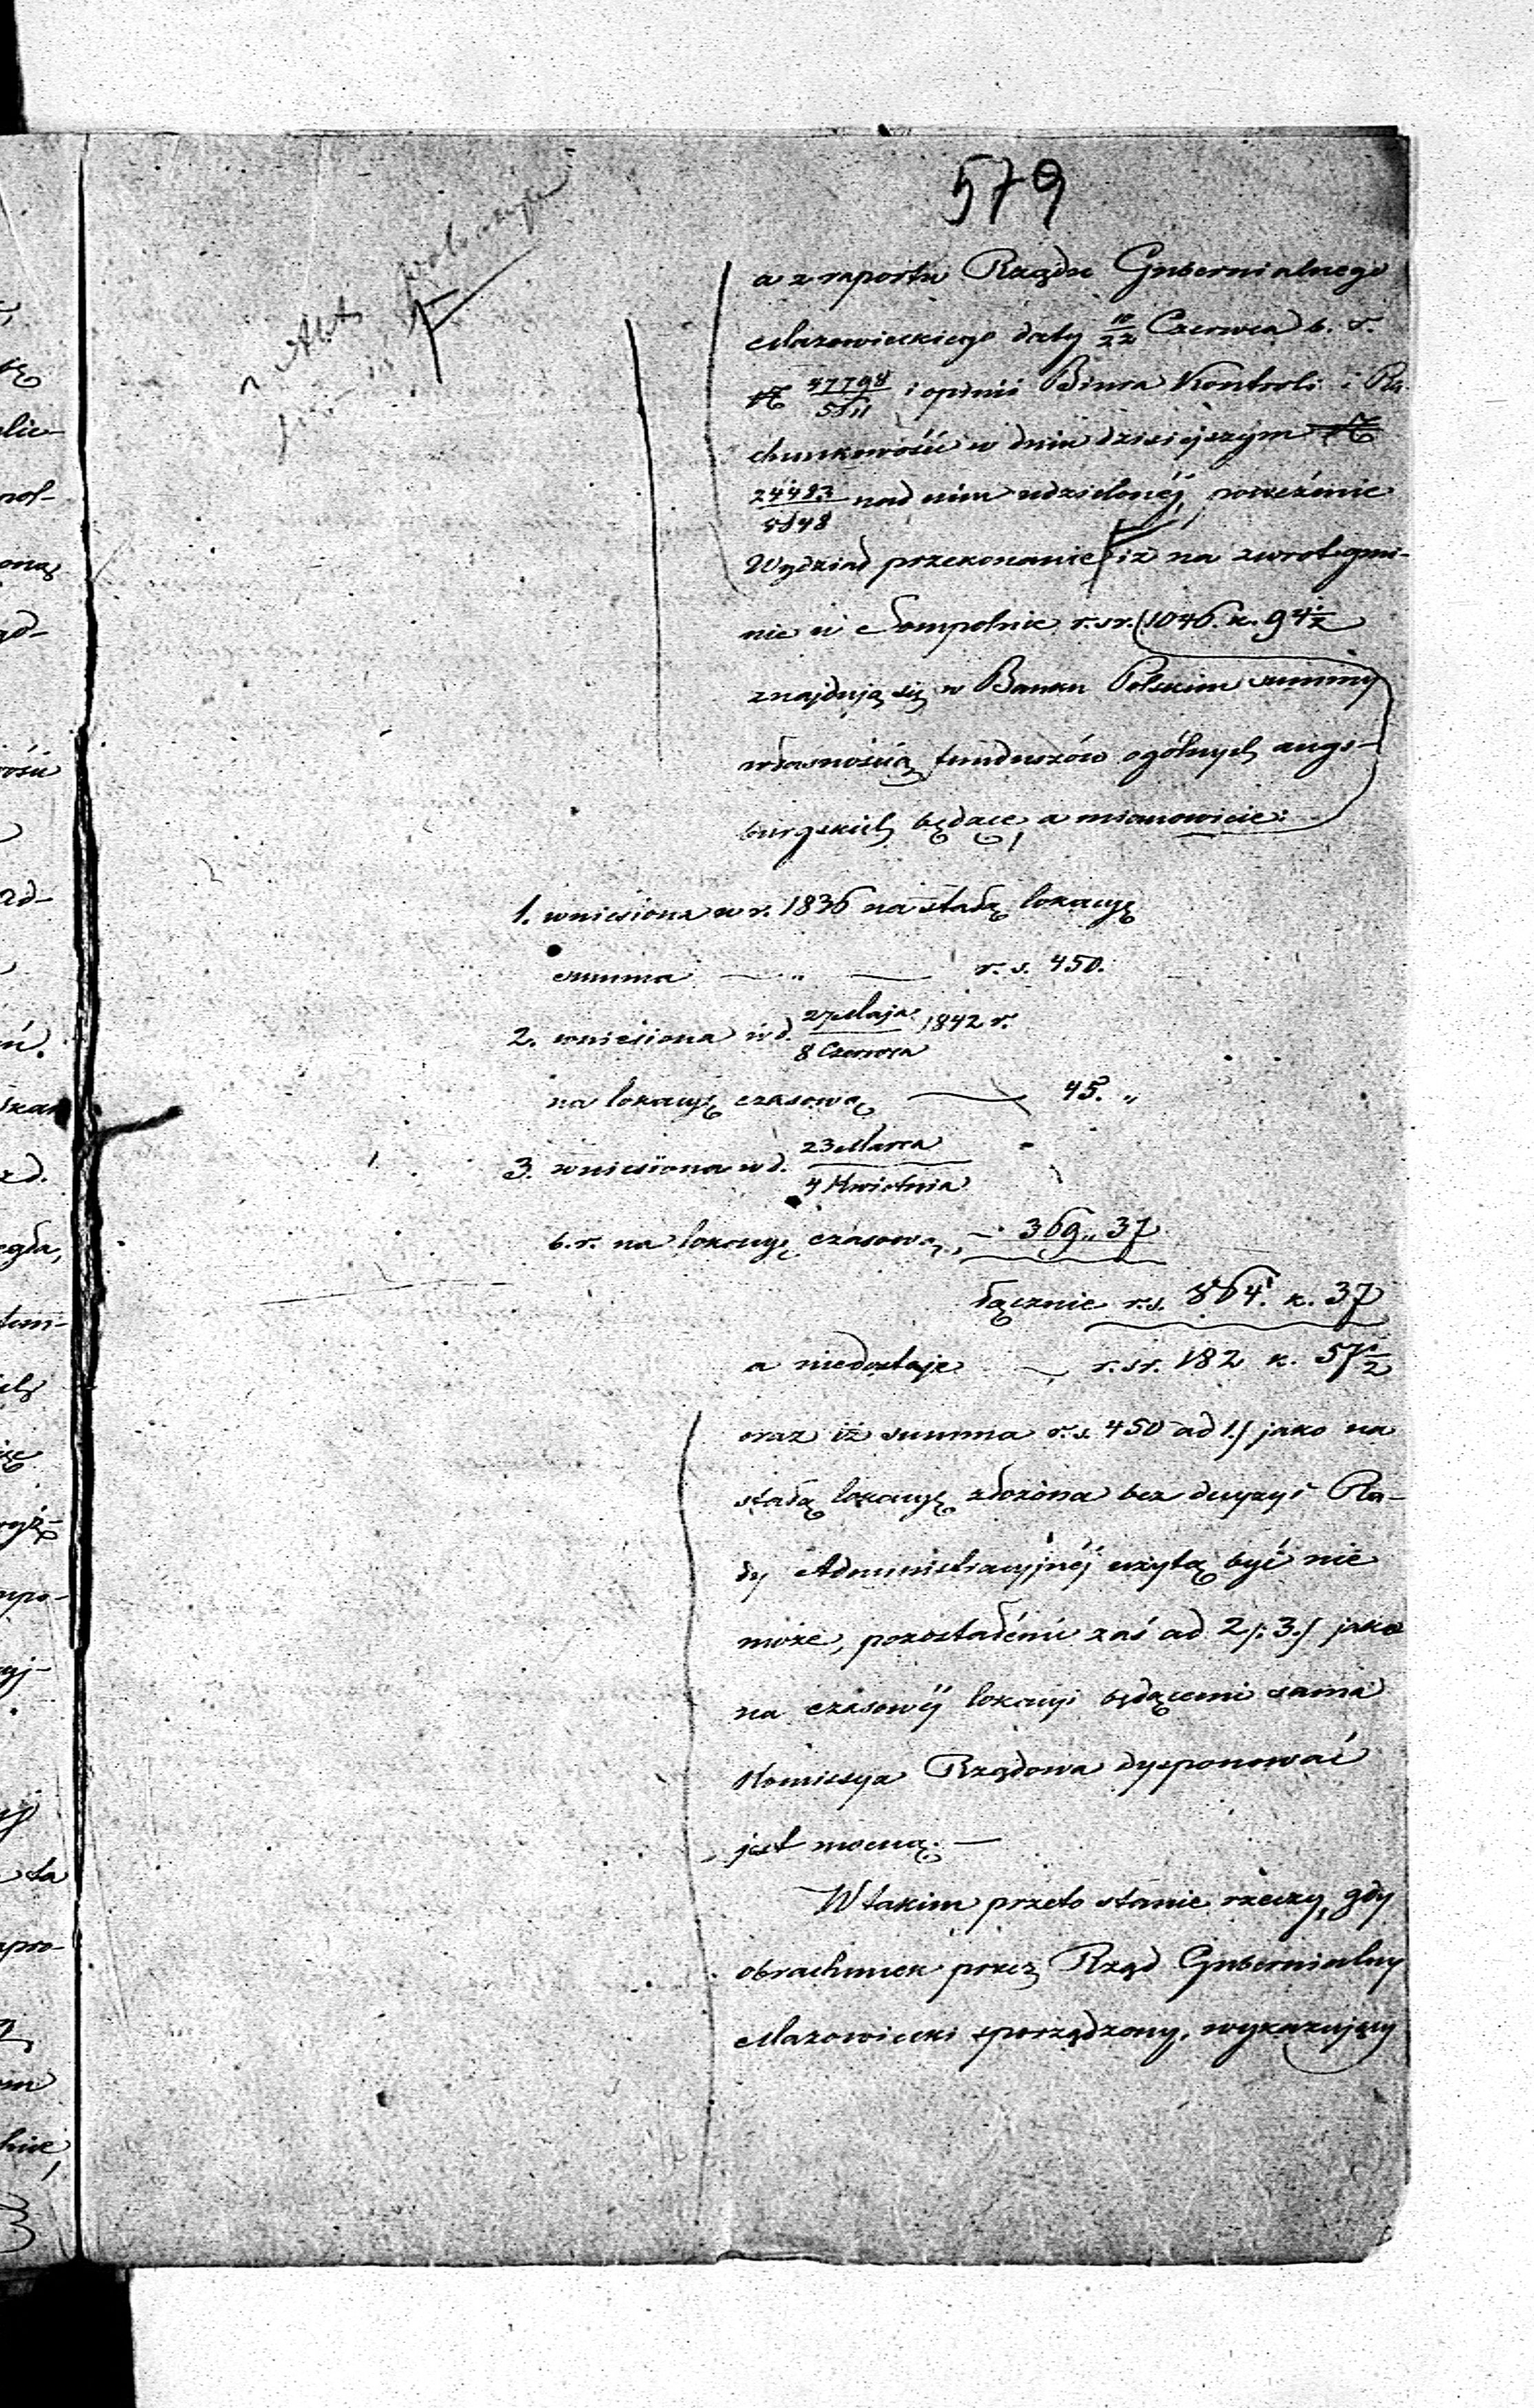 579
a z raportu Rządu Gubernialnego
Mazowieckiego daty 10/22 Czerwca b. r.
№ 47798/5811 i opinii Biura Kontroli i Ra-
chunkowości w dniu dzisiejszym №
24483/5848 nad nim udzielonéj, poweźmie
Wydział przekonanie iż na zwrot gmi-
nie w Sompolnie r. sr. 1046. k. 94½
znajdują się w Banku Polskim summy
własnością funduszów ogólnych augs-
burgskich będące, a mianowicie:
1. wniesiona w r. 1836 na stałą lokacyę
summa — „ — r. s. 450.
2. wniesiona w d. 27 Maja/8 Czerwca 1842 r.
na lokacyę czasową — 45. „
3. wniesiona w d. 23 Marca/4 Kwietnia
b. r. na lokacyę czasową, — 369 „ 37
łącznie r. s. 864. k. 37
a niedostaje — r. sr. 182 k. 57½
oraz iż summa r. s. 450 ad 1./ jako na
stałą lokacyę złożona bez decyzyi Ra-
dy Administracyjnéj użytą być nie
może, pozostałémi zaś ad 2/: 3./ jako
na czasowéj lokacyi będącemi sama
Kommissya Rządowa dysponować
jest mocną. —
W takim przeto stanie rzeczy, gdy
obrachunek przez Rząd Gubernialny
Mazowiecki sporządzony, wykazujący